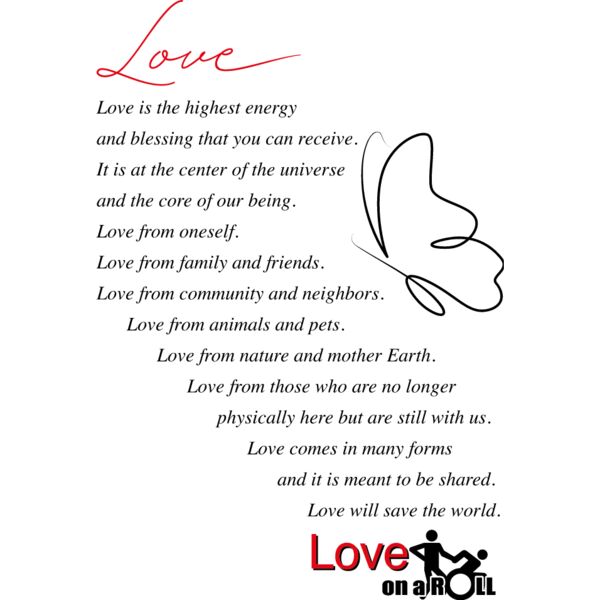 Love
Love is the highest energy
and blessing that you can receive.
It is at the center of the universe
and the core of our being.
Love from oneself.
Love from family and friends.
Love from community and neighbors.
Love from animals and pets.
Love from nature and mother Earth.
Love from those who are no longer
physically here but are still with us.
Love comes in many forms
and it is meant to be shared.
Love will save the world.
Love
on a ROLL